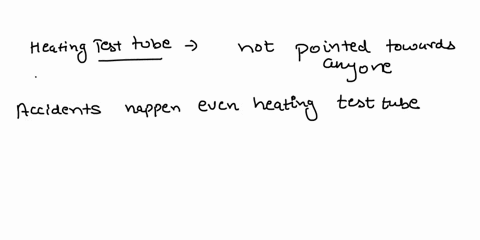 Heating Test tube → not pointed towards
anyone
Accidents happen even heating test tube